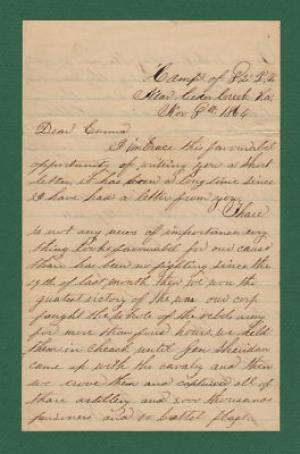 Camp of
Near Ceder Creek Va
Nov 8th 1864
Dear Emma
I imbrace this favourabel
opportunity of writing you a short
letter, it has been a long time since
I have had a letter from you.
Thare
is not any news of importance evry
thing looks favourabel for our cause
thare has been no fighting since the
19th of last month then we won the
greatest victory of the war our corp
fought the whole of the rebels army
for more than five hours we held
them in cheack until Gen Sheridan
came up with the cavalry and then
we drove them and captured all of
thare artillery and thousands
prisoners and battel flags.